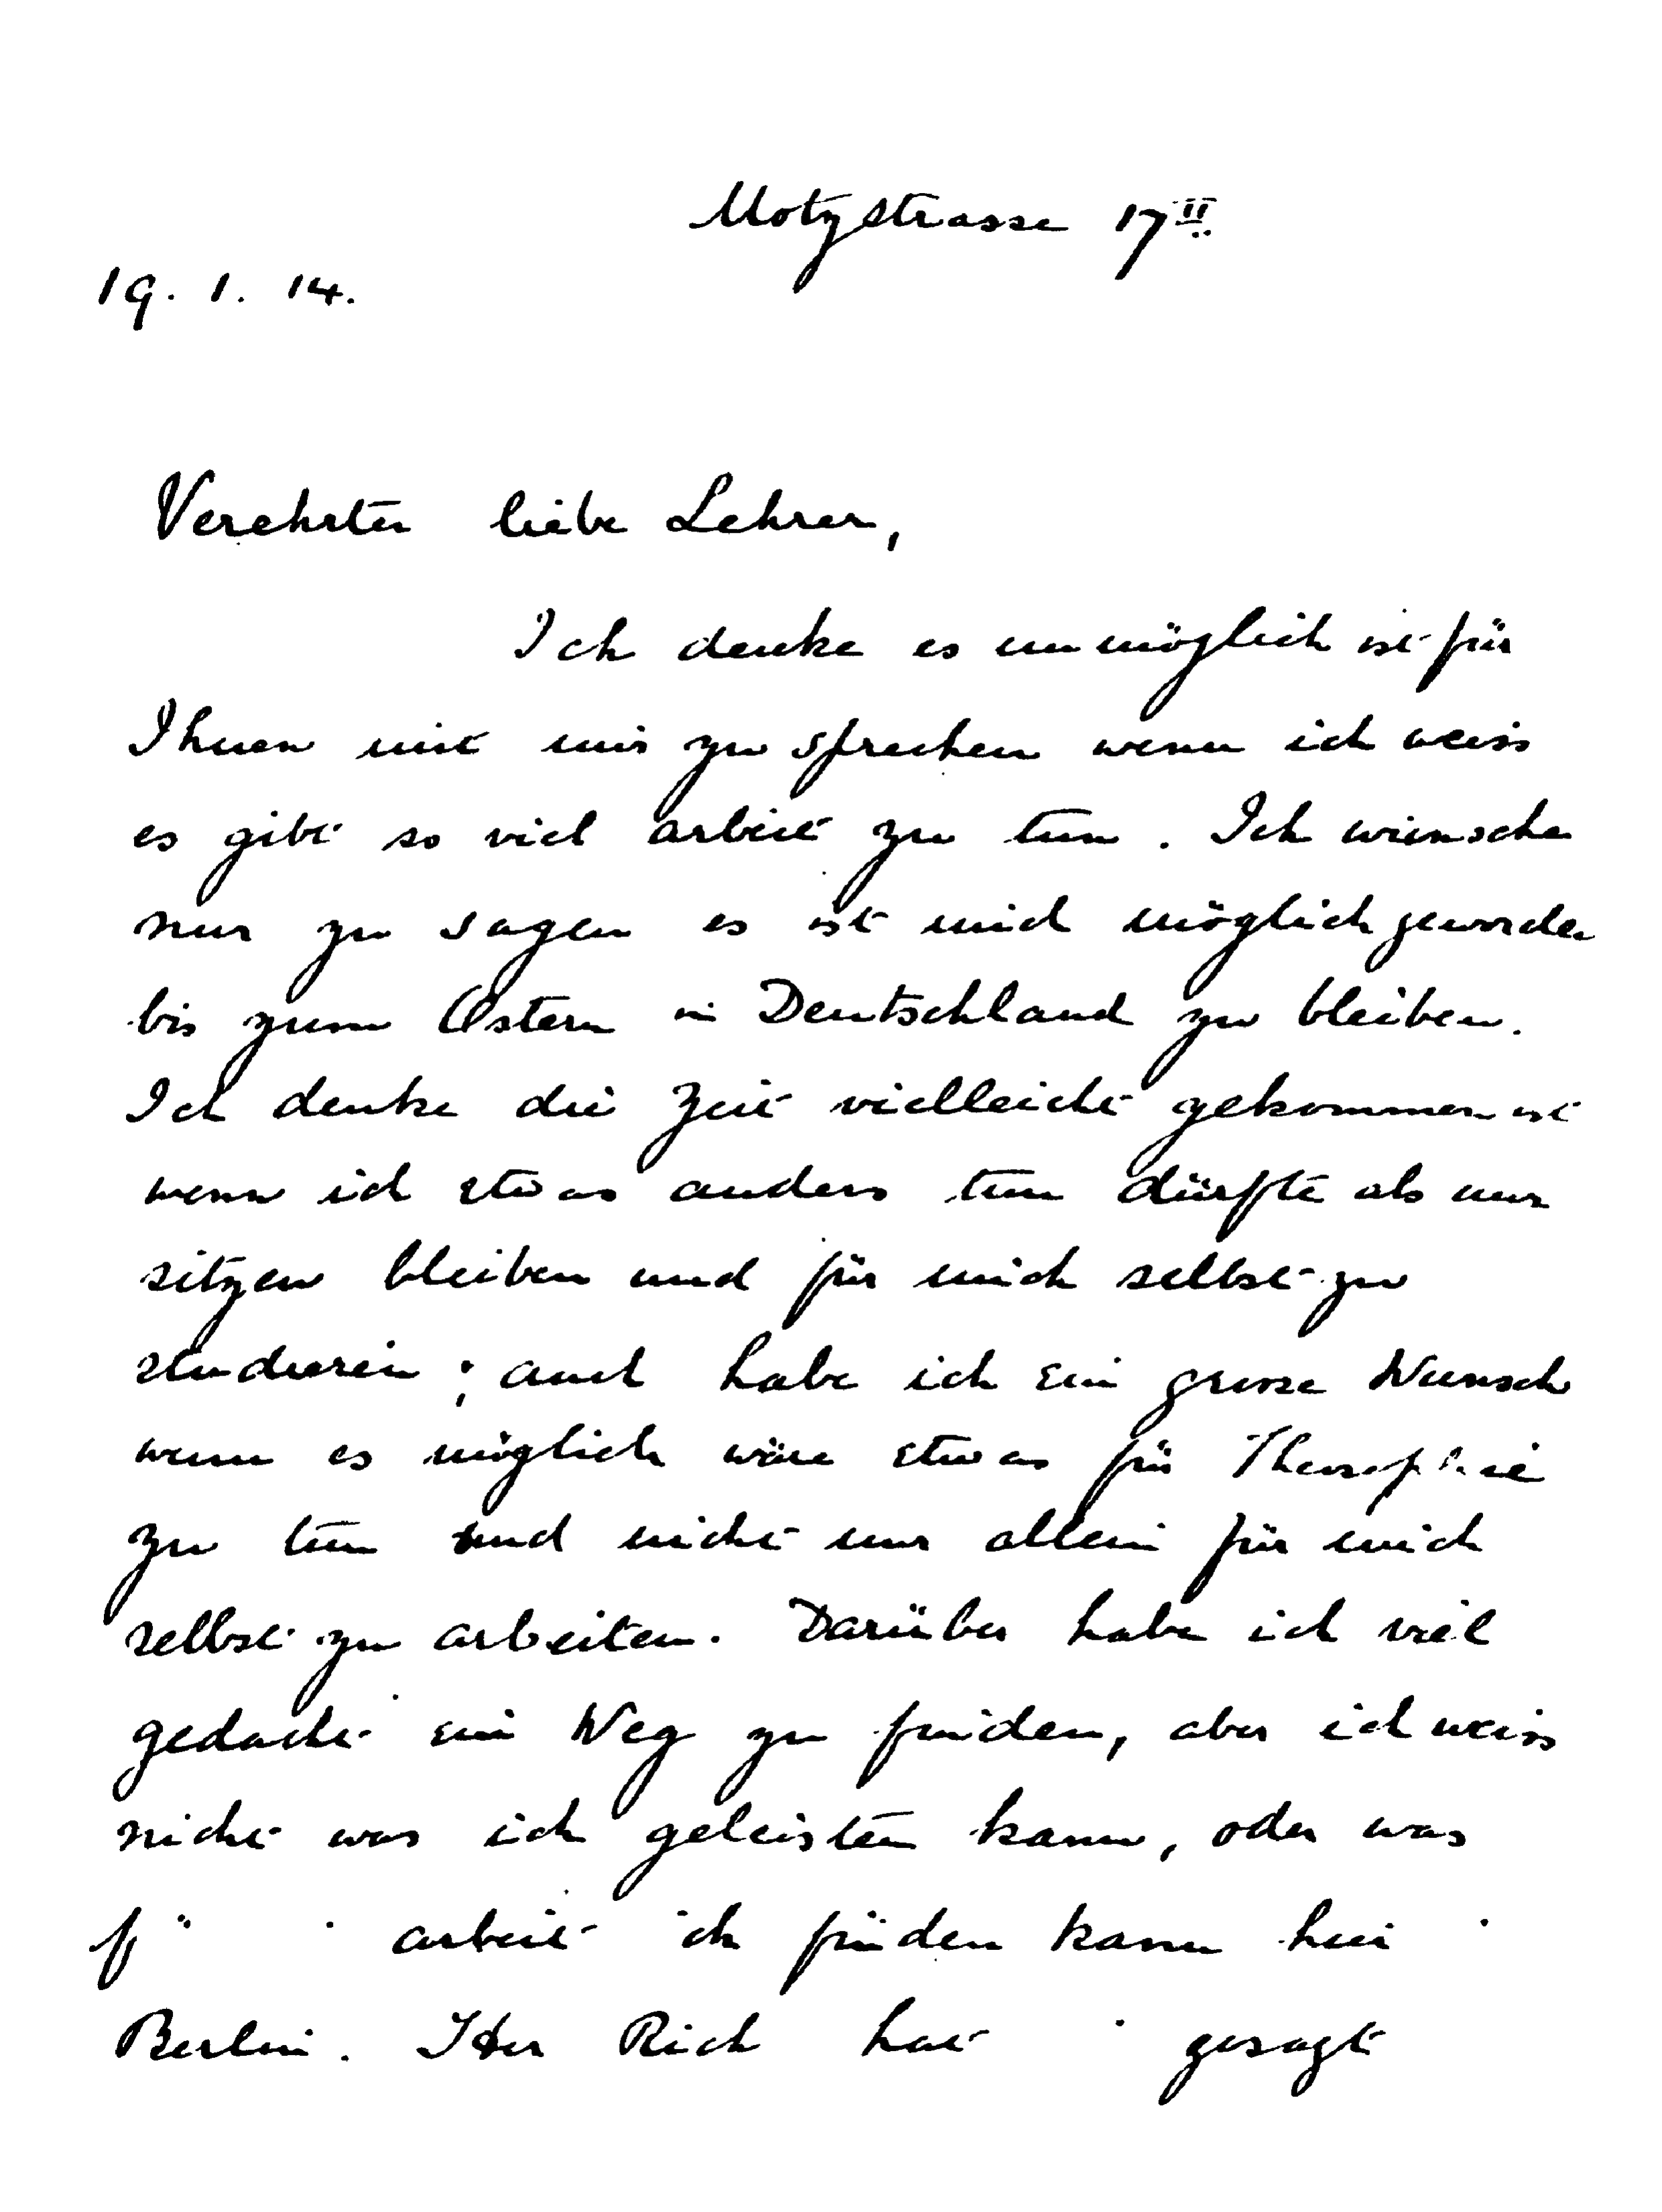 Motzstrasse 17 II
19. 1. 14.
Verehrter liebe Lehrer,
Ich denke es unmöglich ist für
Ihnen mit mir zu sprechen wenn ich weiss
es gibt so viel arbeit zu tun. Ich wünsche
nur zu sagen es ist mich möglich geworden
bis zum Ostern in Deutschland zu bleiben.
Ich denke die Zeit vielleicht gekommen ist
wenn ich etwas anders tun dürfte als nur
sitzen bleiben und für mich selbst zu
studieren; auch habe ich ein grosse Wunsch
wenn es möglich wäre etwas für Theosophie
zu tun und nicht nur allein für mich
selbst zu arbeiten. Darüber habe ich viel
gedacht ein Weg zu finden, aber ich weiss
nicht was ich geleisten kann, oder was
arbeit ich finden kann hier
Berlin. Her Rich hat gesagt